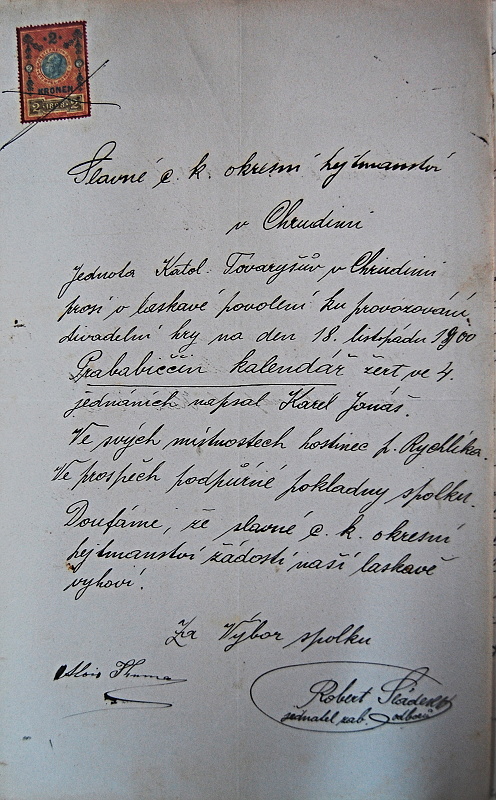 2
KRONEN
2 1898 2
Slavné c. k. okresní hejtmanství
v Chrudimi
Jednota Katol. Tovaryšův v Chrudimi
prosí o laskavé povolení ku provozování
divadelní hry na den 18. listopádu 1900
Prababiččin kalendář žert ve 4.
jednáních napsal Karel Jonáš.
Ve svých místnostech hostinec p. Rychlíka.
Ve prospěch podpůrné pokladny spolku.
Doufáme, že slavné c. k. okresní
hejtmanství žádosti naší laskavě
vyhoví.
Za Výbor spolku
Alois
Robert
jednatel zab. odboru